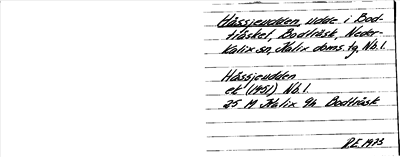 Hässjeudden, udde i Bod-
träsket, Bodträsk, Neder-
Kalix sn, Kalix doms. tg, Nb. l.
Hässjeudden
ek (1951) Nb. l.
25 M Kalix 9h Bodträsk
R.E. 1973